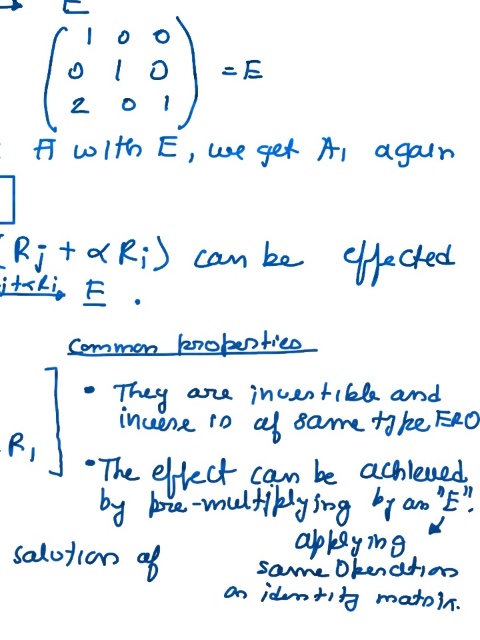 E
( 1 0 0
0 1 0
2 0 1 ) = E
A with E, we get A₁ again
(Rj + αRi) can be effected
j+αRi → E .
Common properties
• They are invertible and
inverse is of same type ERO
R₁
• The effect can be achieved
by pre-multiplying by an "E".
applying
solution of
same operation
on identity matrix.